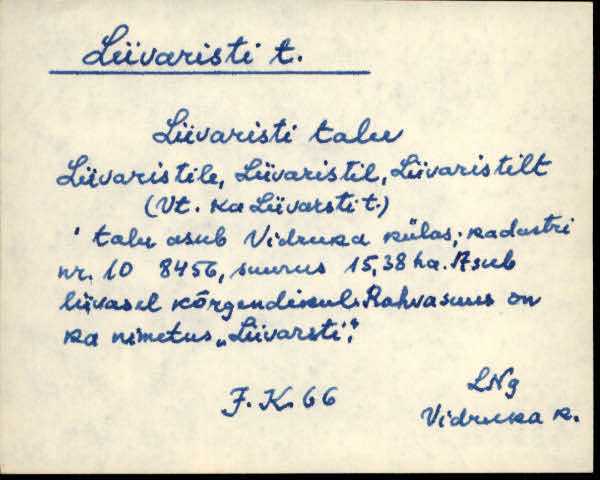 Liivaristi t.
Liivaristi talu
Liivaristile, Liivaristil, Liivaristilt
(Vt. ka Liivarsti t.)
' talu asub Vidruka külas, kadastri
nr. 10 8456, suurus 15,38 ha. Asub
liivasel kõrgendikul. Rahvasuus on
ka nimetus „Liivarsti".
J. K. 66
LNg
Vidruka k.